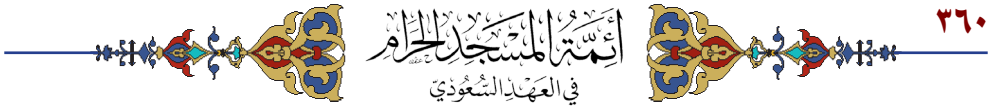 ٣٦٠
أَئِمَّةُ المَسْجِدِ الحَرَامِ
فِي العَهْدِ السُّعُودِيّ